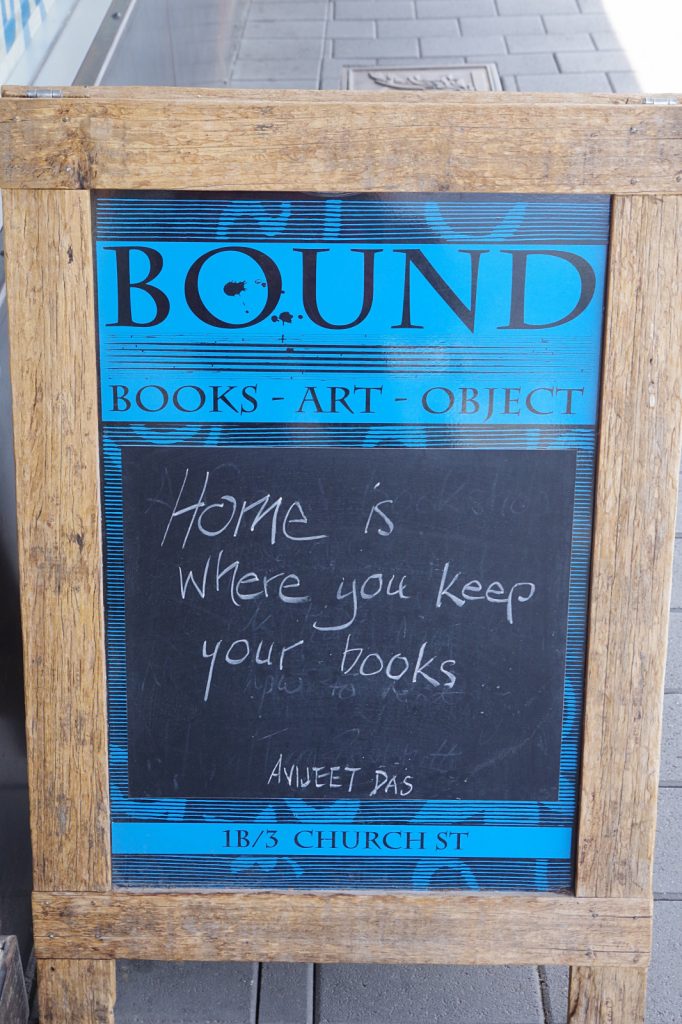 BOUND
BOOKS - ART - OBJECT
Home is
where you keep
your books
AVIJEET DAS
1B/3 CHURCH ST